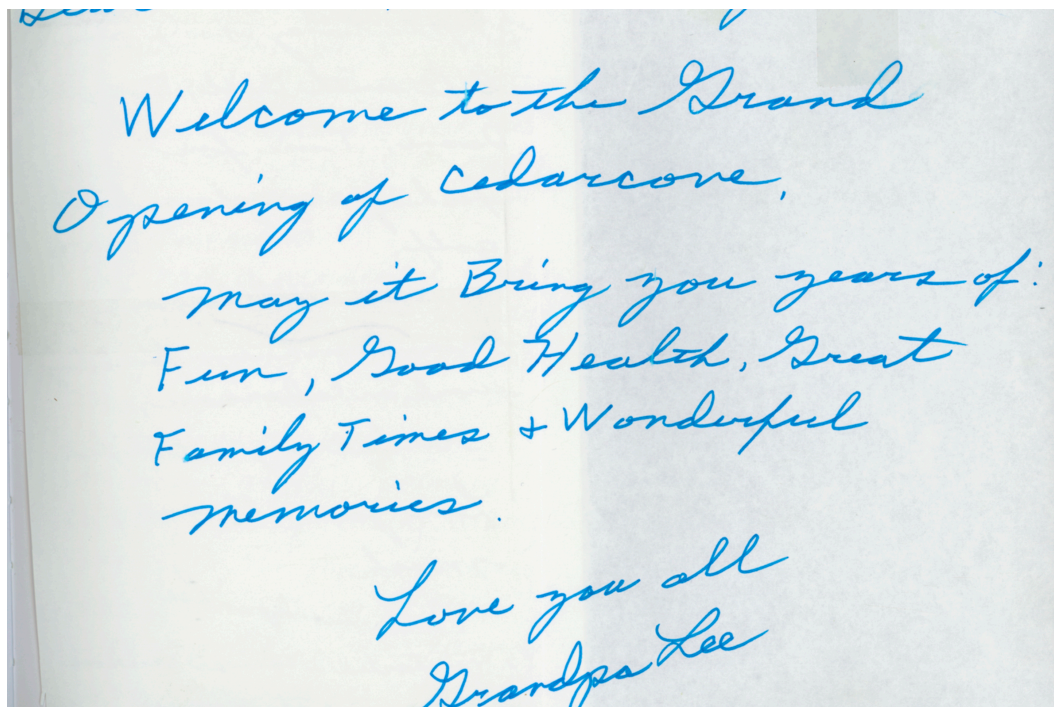 Welcome to the Grand
Opening of Cedarcove,
may it Bring you years of:
Fun, Good Health, Great
Family Times & Wonderful
memories.
Love you all
Grandpa Lee